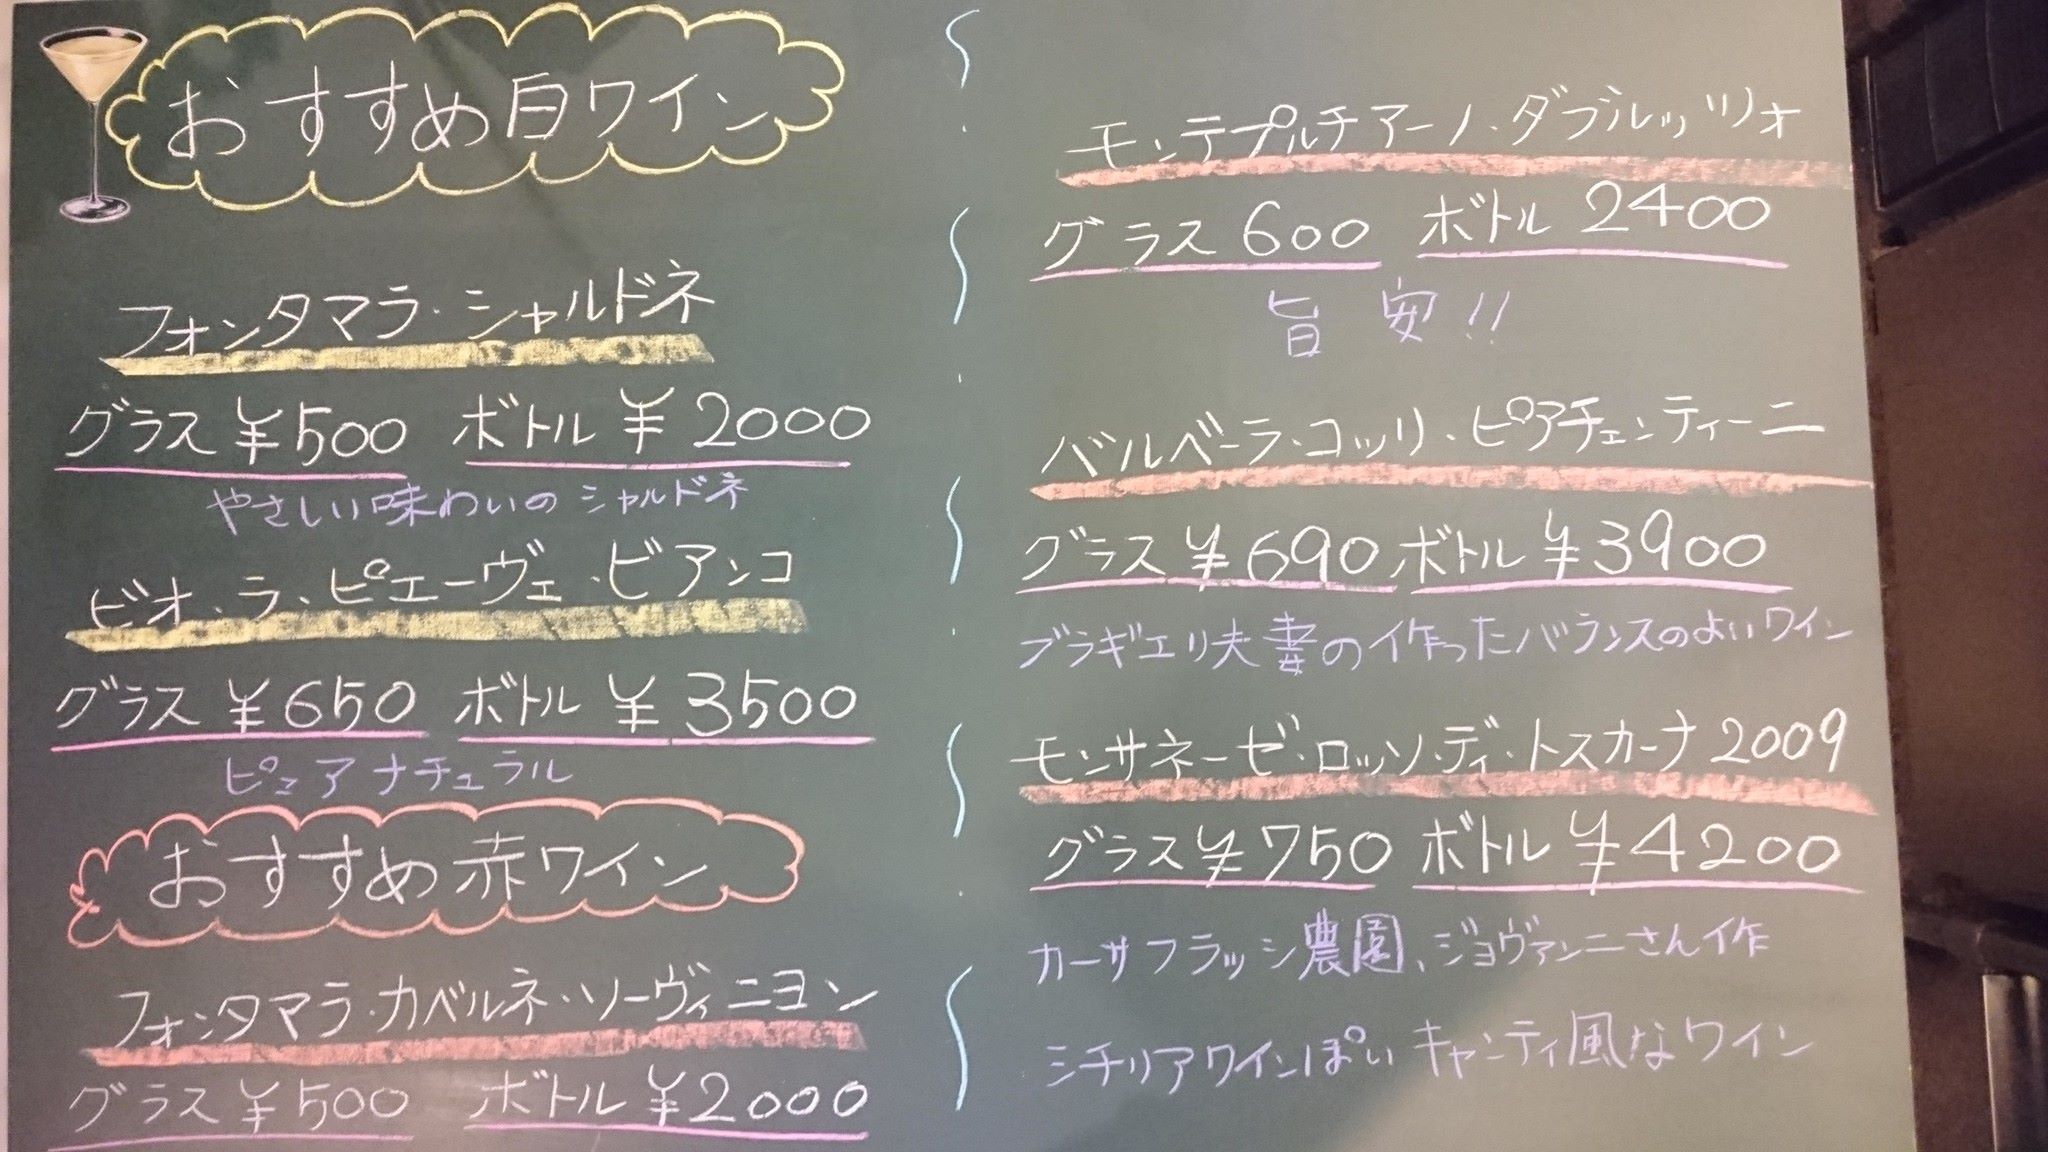 おすすめ白ワイン
フォンタマラ・シャルドネ
グラス ¥500 ボトル ¥2000
やさしい味わいの シャルドネ
ビオ・ラ・ピエーヴェ・ビアンコ
グラス ¥650 ボトル ¥3500
ピュアナチュラル
おすすめ赤ワイン
フォンタマラ・カベルネ・ソーヴィニヨン
グラス ¥500 ボトル ¥2000
モンテプルチアーノ・ダブルッツォ
グラス 600 ボトル 2400
旨 安!!
バルベーラ・コッリ・ピアチェンティーニ
グラス ¥690 ボトル ¥3900
ブラギエリ夫妻の作ったバランスのよいワイン
モンサネーゼ・ロッソ・ディ・トスカーナ 2009
グラス ¥750 ボトル ¥4200
カーサフラッシ農園、ジョヴァンニさん作
シチリアワインぽい キャンティ風なワイン